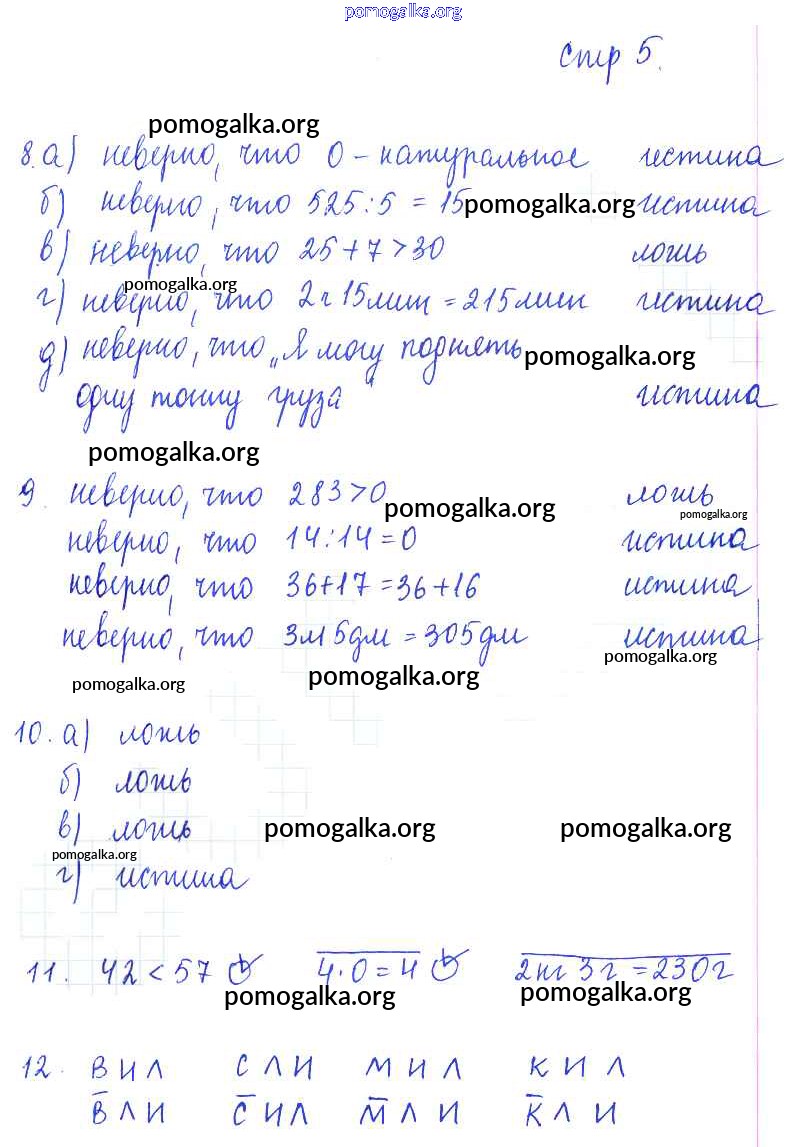 pomogalka.org
стр 5.
pomogalka.org
8. а) неверно, что 0 - натуральное истина
б) неверно, что 525:5 = 15 pomogalka.org истина
в) неверно, что 25+7>30 ложь
pomogalka.org
г) неверно, что 2ч 15мин = 215мин истина
д) неверно, что „Я могу поднять pomogalka.org
одну тонну груза" истина
pomogalka.org
9. неверно, что 283>0 pomogalka.org ложь
pomogalka.org
неверно, что 14:14=0 истина
неверно, что 36+17=36+16 истина
неверно, что 3м 5дм = 305дм истина
pomogalka.org pomogalka.org pomogalka.org
10. а) ложь
б) ложь
в) ложь pomogalka.org pomogalka.org
pomogalka.org
г) истина
11. 42 < 57 4·0=4 2кг 3г = 230г
pomogalka.org pomogalka.org
12. В И Л С Л И М И Л К И Л
В̅ Л И С̅ И Л М̅ Л И К̅ Л И